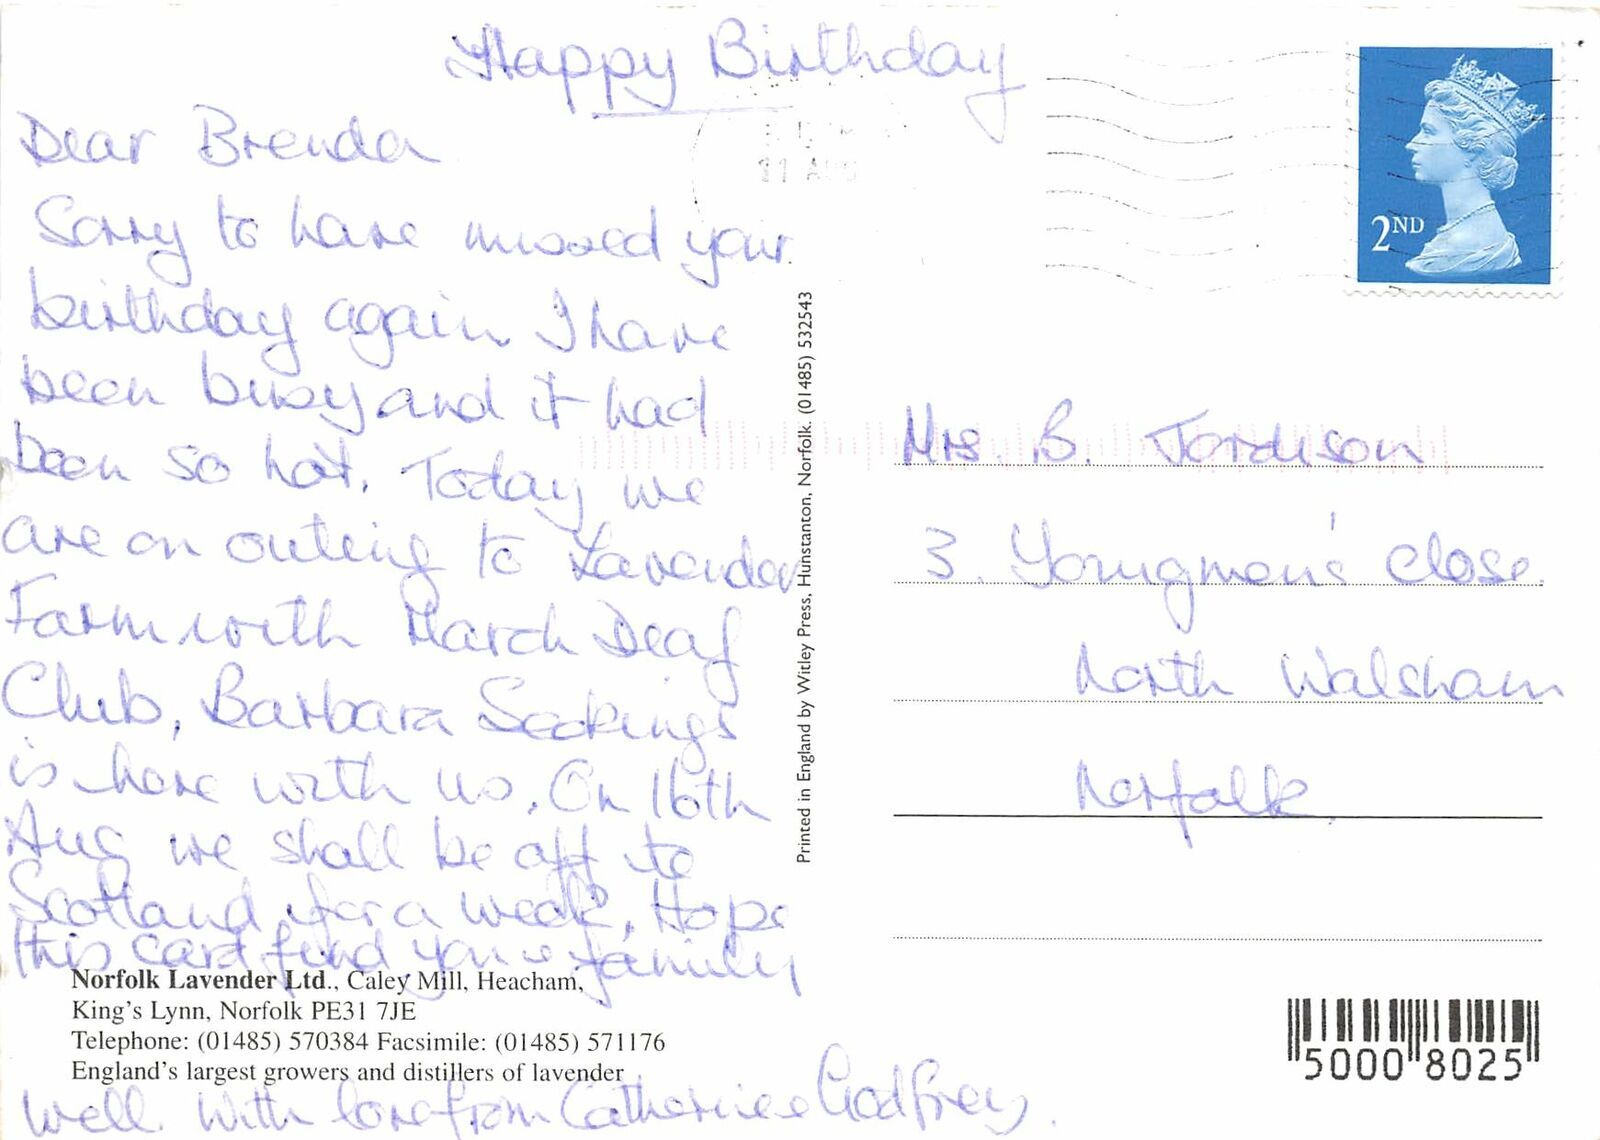 Happy Birthday
Dear Brenda
Sorry to have missed your
birthday again I have
been busy and it had
been so hot. Today we
are on outeing to Lavender
Farm with March Deaf
Club, Barbara Seckings
is here with us. On 16th
Aug we shall be off to
Scotland for a week. Hope
this card find you & family
Norfolk Lavender Ltd., Caley Mill, Heacham,
King's Lynn, Norfolk PE31 7JE
Telephone: (01485) 570384 Facsimile: (01485) 571176
England's largest growers and distillers of lavender
well with love from Catherine & Godfrey.
Printed in England by Witley Press, Hunstanton, Norfolk. (01485) 532543
11 AUG
2ND
Mrs. B. Jordison
3. Youngmen's Close.
North Walsham
Norfolk.
5000 8025